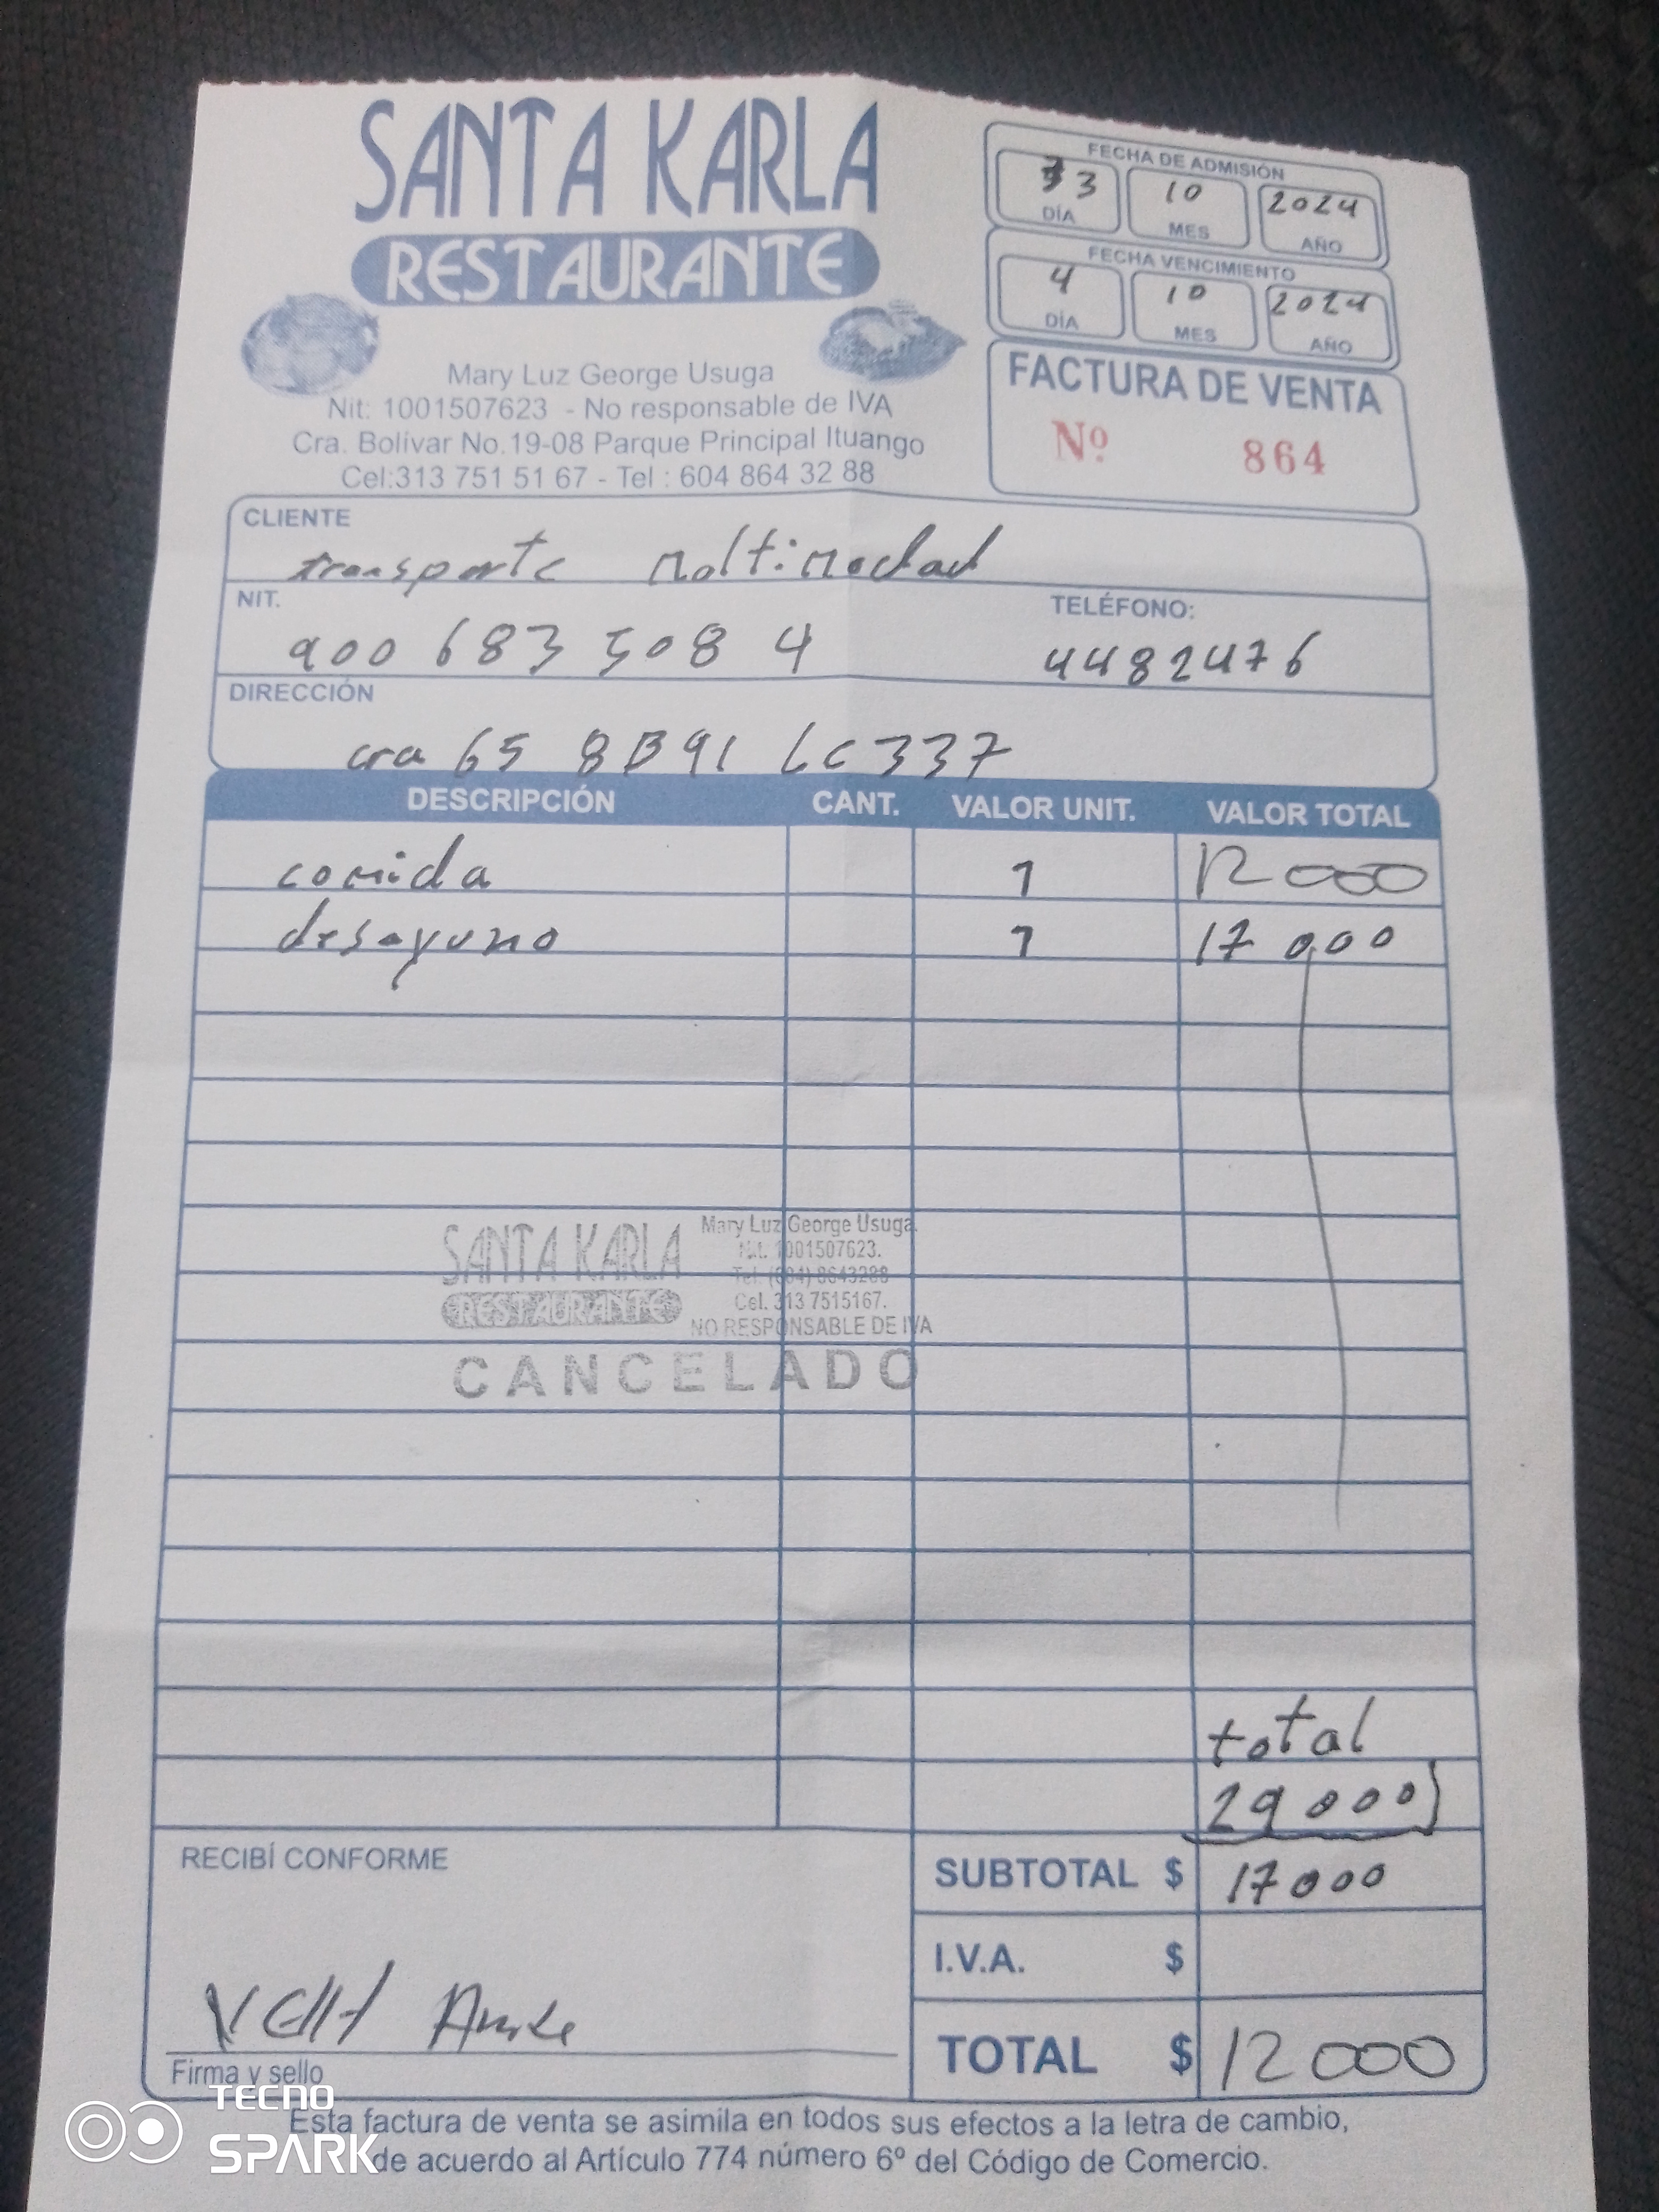 SANTA KARLA
RESTAURANTE
Mary Luz George Usuga
Nit: 1001507623 - No responsable de IVA
Cra. Bolívar No.19-08 Parque Principal Ituango
Cel:313 751 51 67 - Tel : 604 864 32 88
FECHA DE ADMISIÓN
3 10 2024
DÍA MES AÑO
FECHA VENCIMIENTO
4 10 2024
DÍA MES AÑO
FACTURA DE VENTA
Nº 864
CLIENTE
transporte moltimodad
NIT. TELÉFONO:
900 683 508 4 4482476
DIRECCIÓN
cra 65 8B91 Lc 337
DESCRIPCIÓN CANT. VALOR UNIT. VALOR TOTAL
comida 1 12 000
desayuno 1 17 000
SANTA KARLA
RESTAURANTE
Mary Luz George Usuga
Nit. 1001507623.
Tel. (604) 8643288
Cel. 313 7515167.
NO RESPONSABLE DE IVA
CANCELADO
total
29 000
RECIBÍ CONFORME
SUBTOTAL $ 17000
I.V.A. $
TOTAL $ 12 000
Firma y sello
TECNO
SPARK
Esta factura de venta se asimila en todos sus efectos a la letra de cambio,
de acuerdo al Artículo 774 número 6º del Código de Comercio.